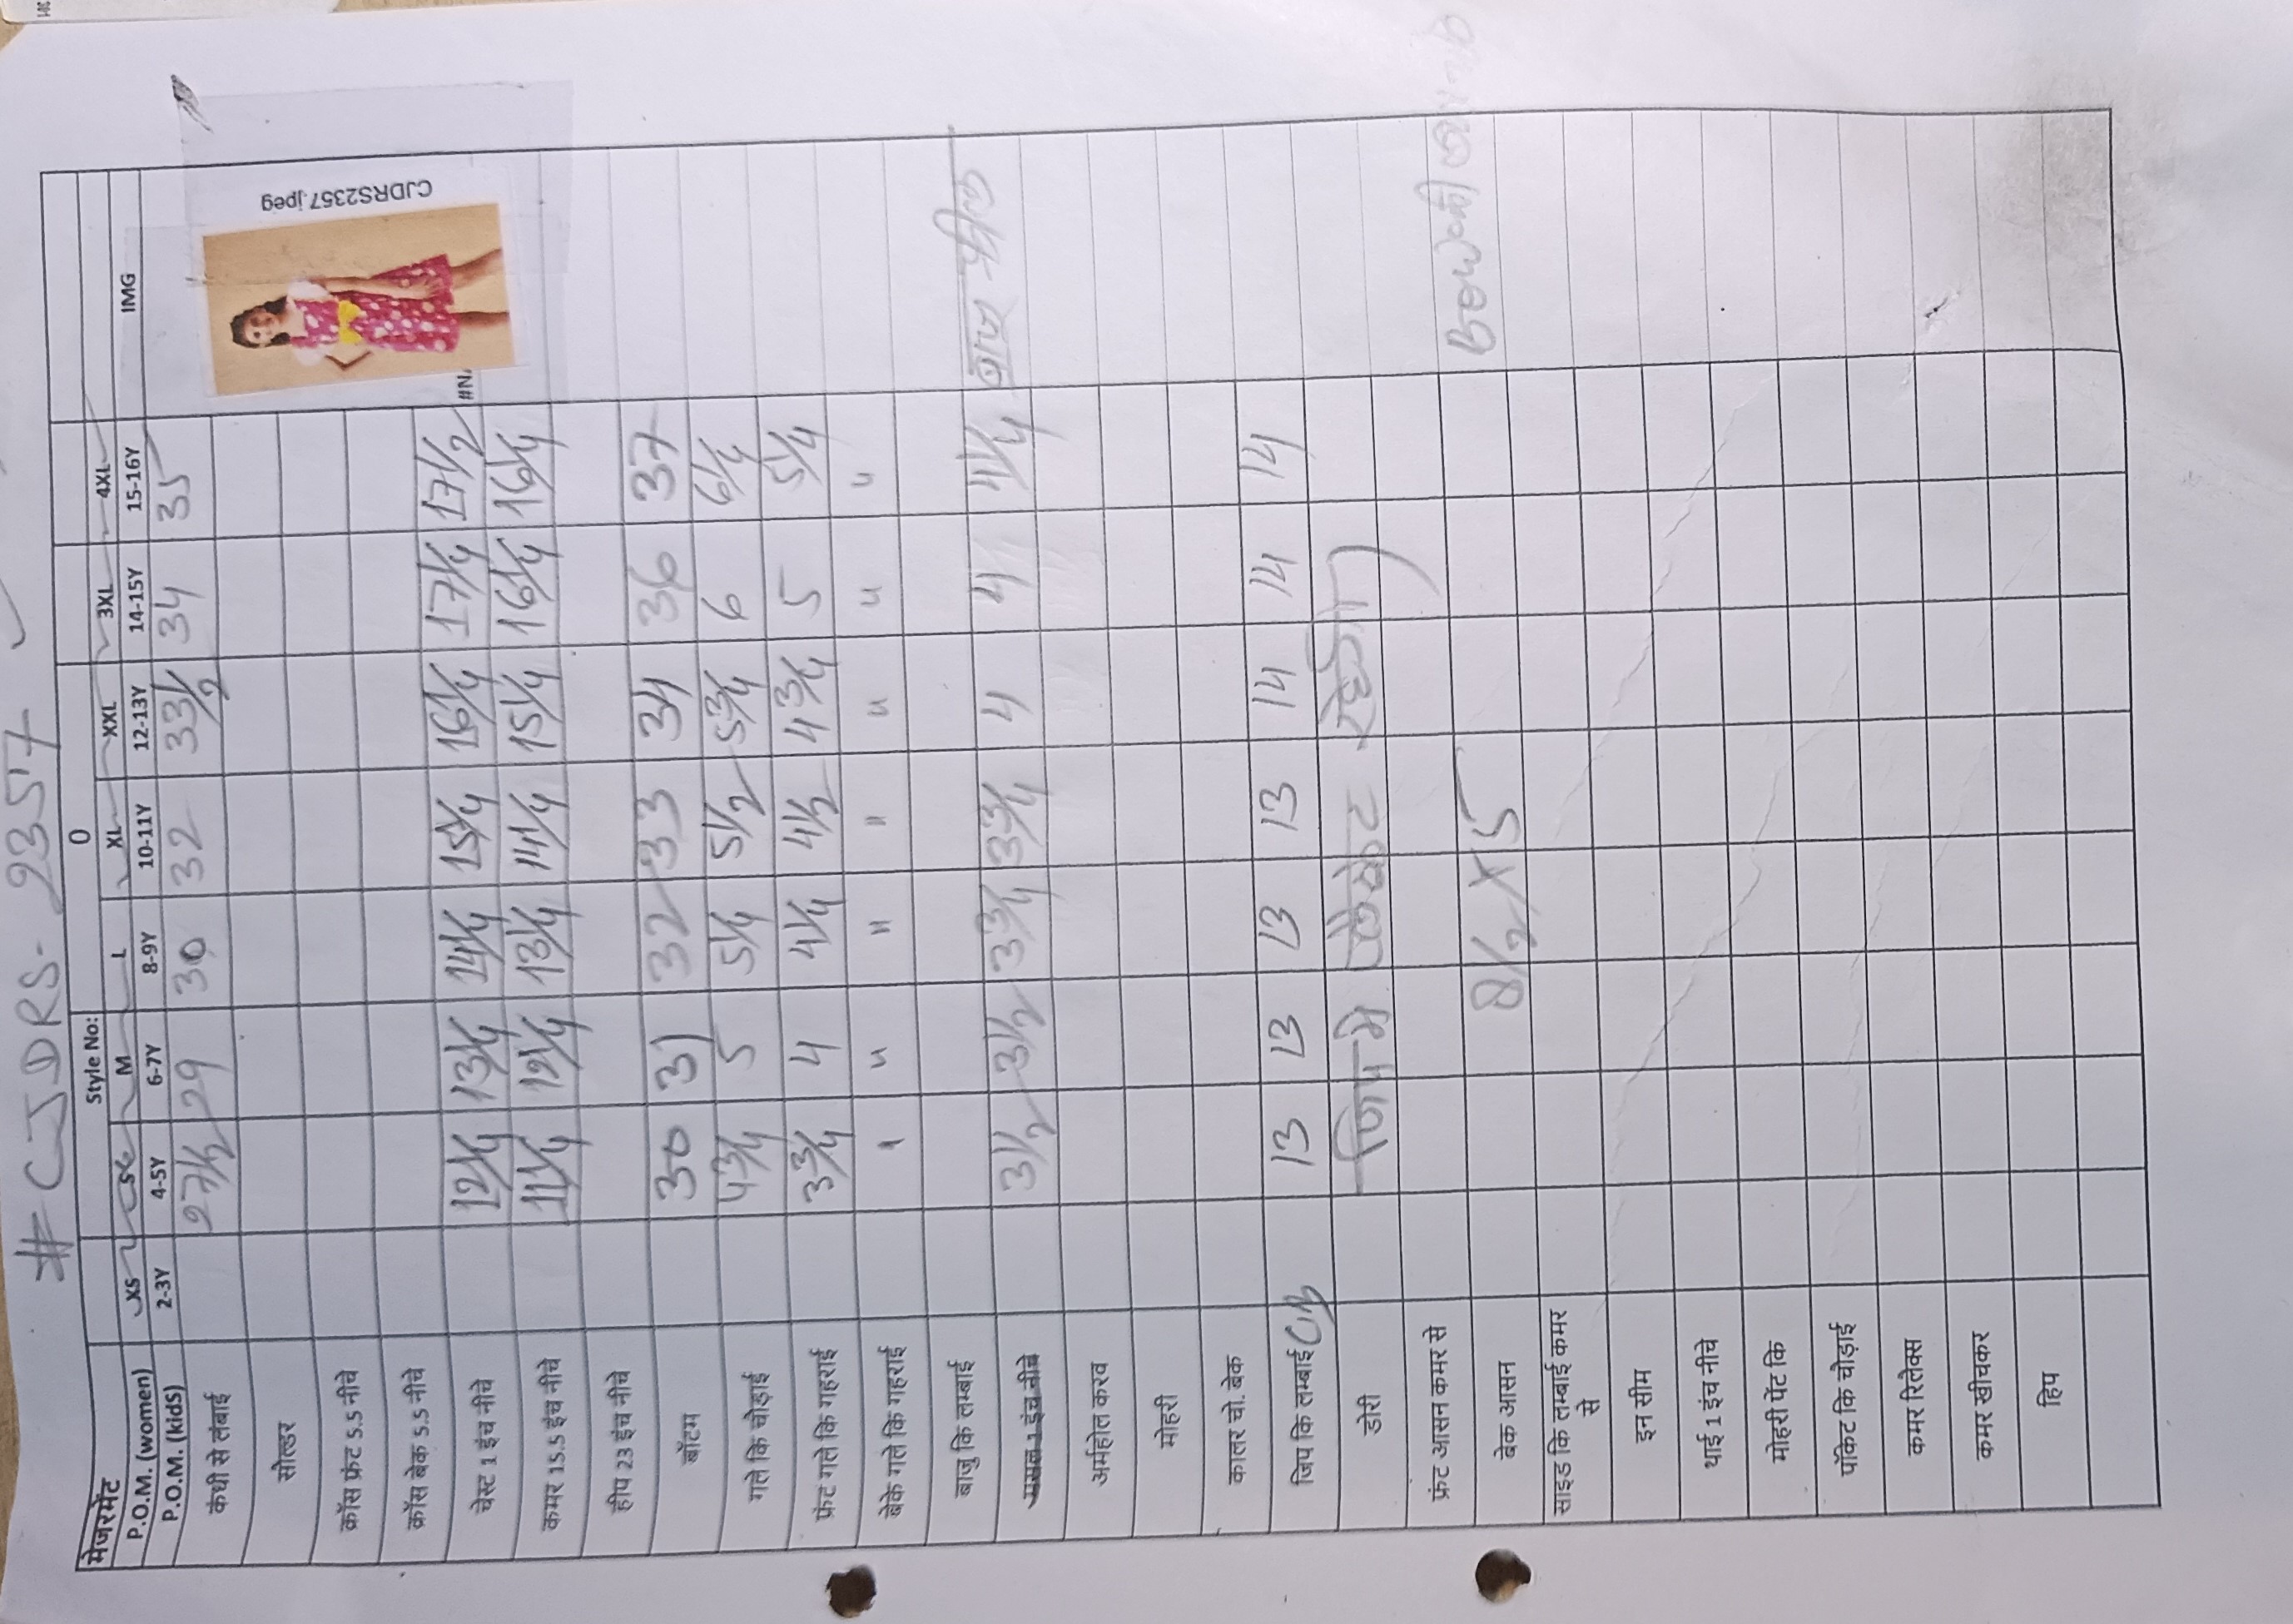 # CJDRS- 2357
मेजरमेंट Style No: 0
P.O.M. (women) XS S L M L XL XXL 3XL 4XL IMG
P.O.M. (kidS) 2-3Y 4-5Y 6-7Y 8-9Y 10-11Y 12-13Y 14-15Y 15-16Y
कंधी से लंबाई 27 1/2 29 30 32 33 1/2 34 35
CJDRS2357.jpeg
सोल्डर
क्रॉस फ्रंट 5.5 नीचे
क्रॉस बेक 5.5 नीचे
चेस्ट 1 इंच नीचे 12 1/4 13 1/4 14 1/4 15 1/4 16 1/4 17 1/4 17 1/2 #N/
कमर 15.5 इंच नीचे 11 1/4 12 1/4 13 1/4 14 1/4 15 1/4 16 1/4 16 1/4
हीप 23 इंच नीचे
बॉटम 30 31 32 33 34 36 37
गले कि चोड़ाई 4 3/4 5 5 1/4 5 1/2 5 3/4 6 6 1/4
फ्रंट गले कि गहराई 3 3/4 4 4 1/4 4 1/2 4 3/4 5 5 1/4
बेके गले कि गहराई " " " " " " "
बाजु कि लम्बाई
मसल 1 इंच नीचे 3 1/2 3 1/2 3 3/4 3 3/4 4 4 4 1/4 बाजु
अर्महोल करव
मोहरी
कालर चो. बेक
जिप कि लम्बाई CB 13 13 13 13 14 14 14
डोरी जिप मे प्लेकेट रहेगा)
फ्रंट आसन कमर से
बेक आसन 8 1/2 X 5
साइड कि लम्बाई कमर से
इन सीम
थाई 1 इंच नीचे
मोहरी पेंट कि
पॉकेट कि चौड़ाई
कमर रिलेक्स
कमर खीचकर
हिप